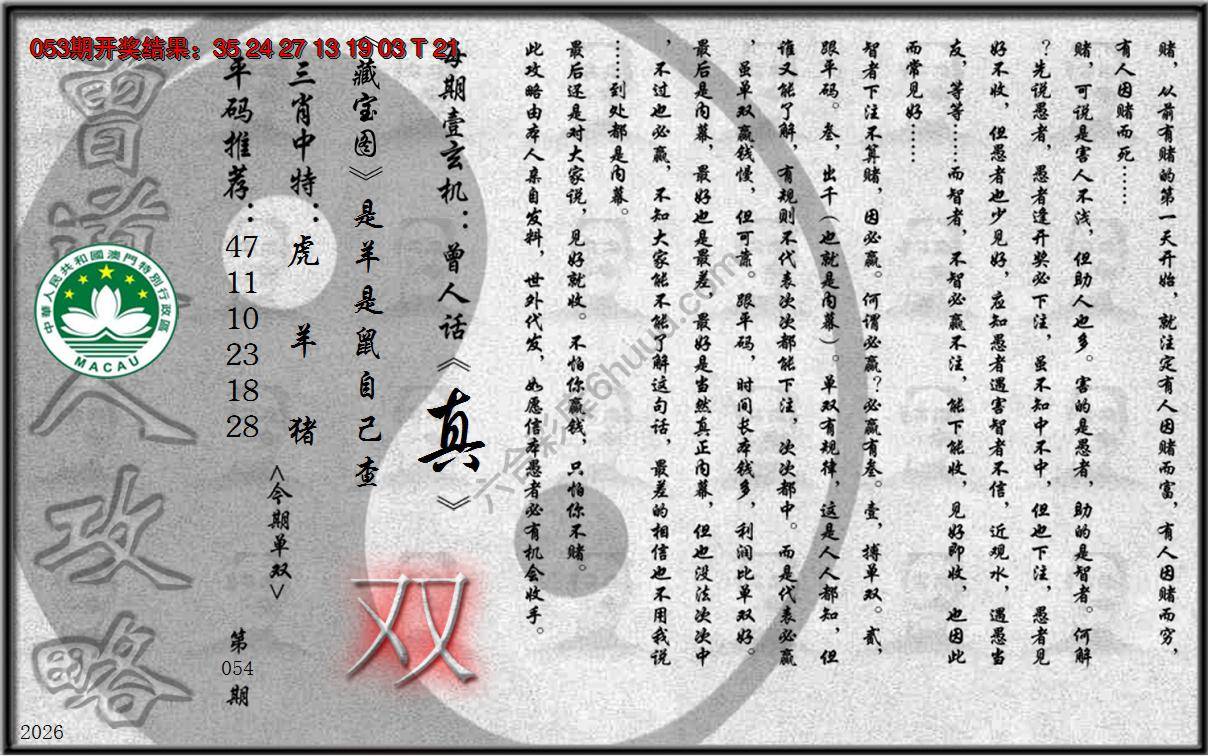 053期开奖结果：35 24 27 13 19 03 T 21
赌，从前有赌的第一天开始，就注定有人因赌而富，有人因赌而穷，
有人因赌而死……
赌，可说是害人不浅，但助人也多。害的是愚者，助的是智者。何解
？先说愚者，愚者逢开奖必下注，虽不知中不中，但也下注，愚者见
好不收，但愚者也少见好，应知愚者遇害智者不信，近观水，遇愚当
友，等等……而智者，不智必赢不注，能下能收，见好即收，也因此
而常见好……
智者下注不算赌，因必赢。何谓必赢？必赢有叁。壹，搏单双。贰，
跟平码。叁，出千（也就是内幕）。单双有规律，这是人人都知，但
谁又能了解，有规则不代表次次都能下注，次次都中。而是代表必赢
，虽单双赢钱慢，但可靠。跟平码，时间长本钱多，利润比单双好。
最后是内幕，最好也是最差，最好是当然真正内幕，但也没法次次中
，不过也必赢，不知大家能不能了解这句话，最差的相信也不用我说
……到处都是内幕。
最后还是对大家说，见好就收。不怕你赢钱，只怕你不赌。
此攻略由本人亲自发料，世外代发，如愿信本愚者必有机会收手。
每期壹玄机：曾人话《真》
《藏宝图》是羊是鼠自己查
双
三肖中特：虎 羊 猪
<今期单双>
平码推荐：47 11 10 23 18 28
第054期
曾道人攻略
中華人民共和國澳門特別行政區
MACAU
六合彩库6huuu.com
2026